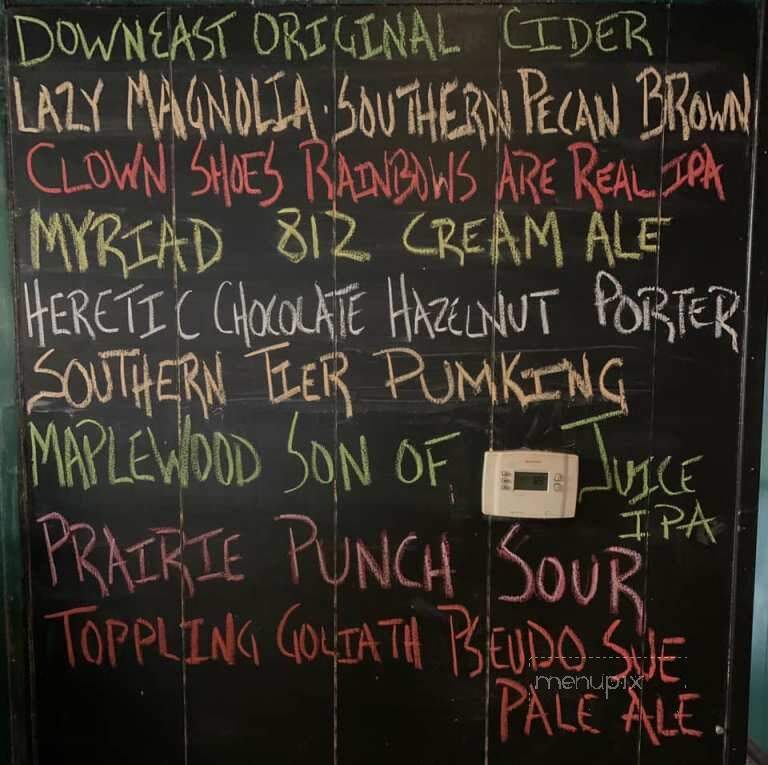 DOWNEAST ORIGINAL CIDER
LAZY MAGNOLIA · SOUTHERN PECAN BROWN
CLOWN SHOES RAINBOWS ARE REAL IPA
MYRIAD 812 CREAM ALE
HERETIC CHOCOLATE HAZELNUT PORTER
SOUTHERN TIER PUMKING
MAPLEWOOD SON OF JUICE
IPA
PRAIRIE PUNCH SOUR
TOPPLING GOLIATH PSEUDO SUE
menupix
PALE ALE